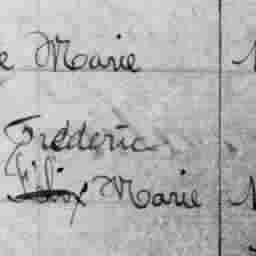 e Marie
Frédéric
Félix Marie